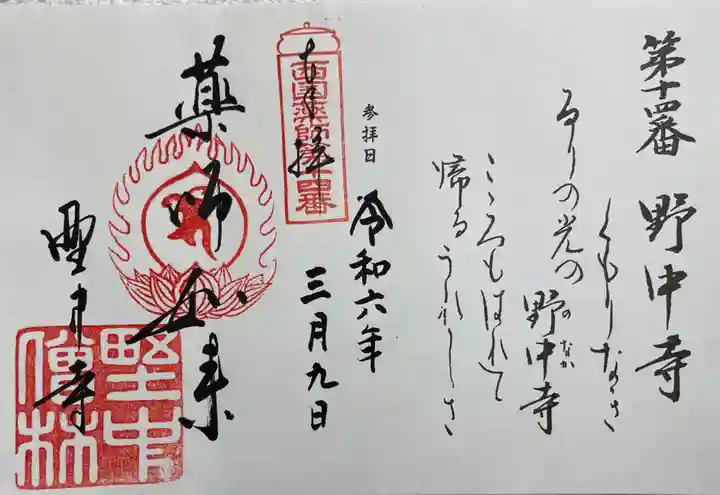 第十四番 野中寺
くもりなき
るりの光の
野中寺
のなか
こゝろもはれて
帰るうれしさ
参拝日
令和六年
三月九日
奉拝
西国薬師第十四番
薬師如来
野中寺
野中
僧林